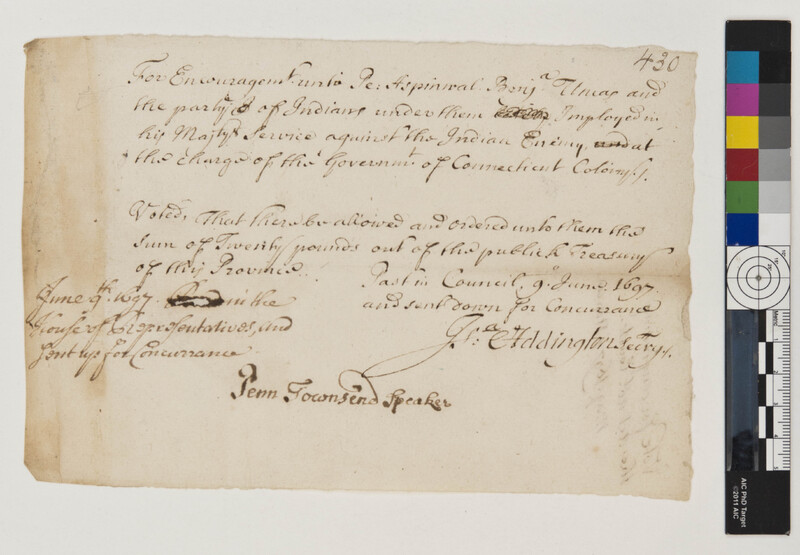 430
For Encouragemt. unto Per Aspinwal Benja. Uncas and
the partys of Indians under them Imployed in
his Majtys. Service against the Indian Enemy at
the charge of the Governmt. of Connecticut Colony.
Voted, That there be allowed and ordered unto them the
Sum of Twenty pounds out of the publick Treasury
of this Province.
Past in Council, 9o. June. 1697.
and sent down for Concurrance
Isa. Addington Secry.
June 9th. 1697. in the
House of Representatives, and
sent up for Concurrance
Penn Townsend Speaker
AIC PhD Target
©2011 AIC